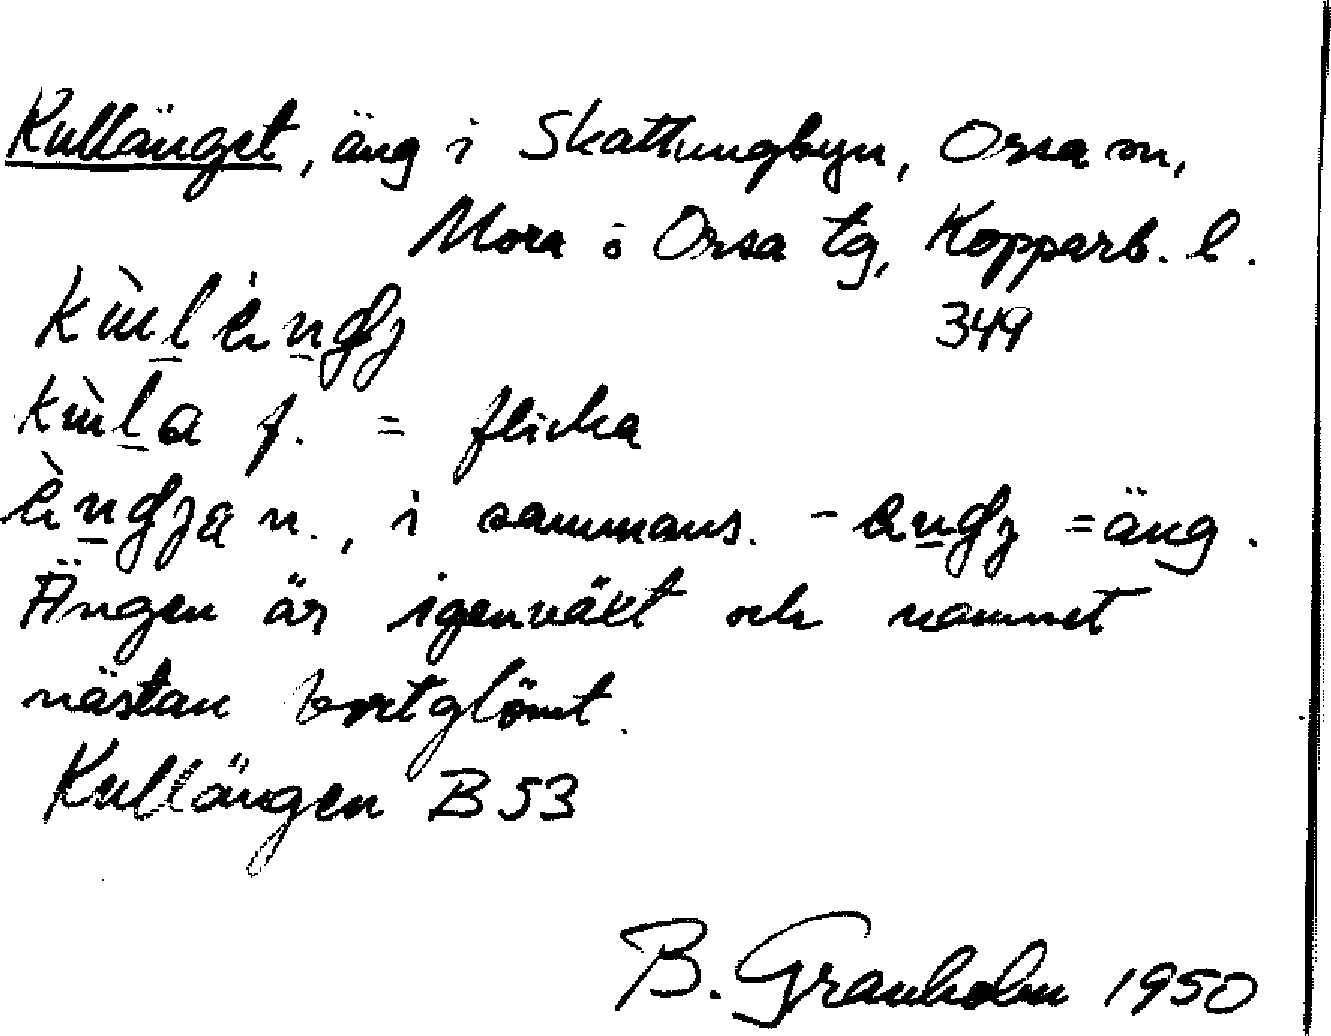 Kullänget, äng i Skattungbyn, Orsa sn,
Mora o Orsa tg, Kopparb. l.
349
f. = flicka
n., i sammans. - =äng.
Ängen är igenväxt och namnet
nästan bortglömt.
Kullängen B 53
B. Granholm 1950